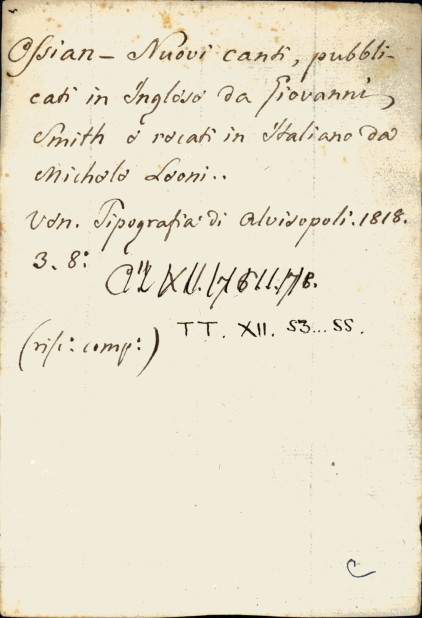 Ossian – Nuovi canti, pubbli-
cati in Inglese da Giovanni
Smith e recati in Italiano da
Michele Leoni..
Ven. Tipografia di Alvisopoli. 1818.
3. 8:
TT. XII. 53...55.
(rif: comp:)
C